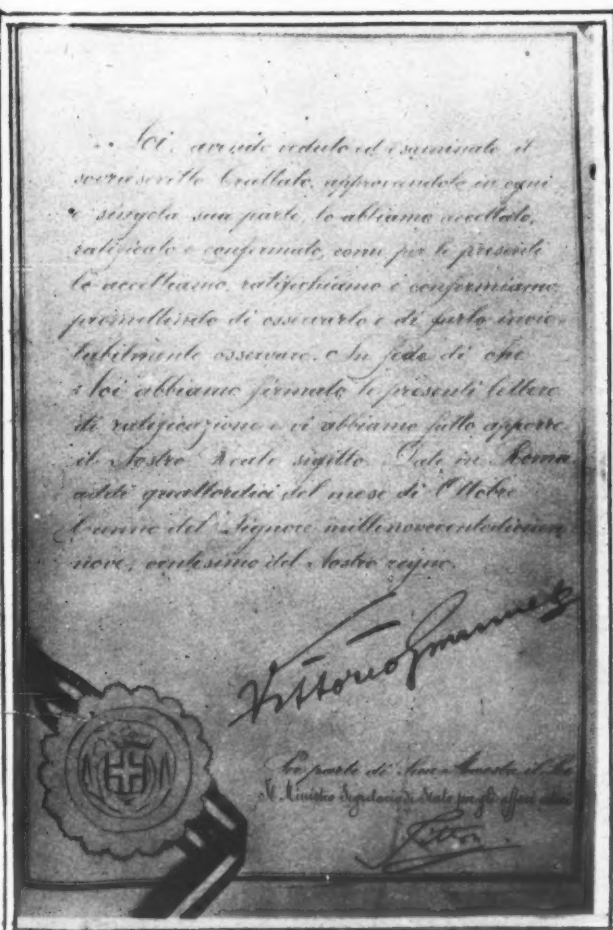 Noi, avendo veduto ed esaminato il
sovrascritto Trattato, approvandolo in ogni
e singola sua parte, lo abbiamo accettato,
ratificato e confermato, come per le presenti
lo accettiamo, ratifichiamo e confermiamo,
promettendo di osservarlo e di farlo invio-
labilmente osservare. In fede di che
Noi abbiamo firmato le presenti lettere
di ratificazione e vi abbiamo fatto apporre
il Nostro Reale sigillo. Date in Roma
addì quattordici del mese di Ottobre
l'anno del Signore millenovecentodician
nove, ventesimo del Nostro regno.
Vittorio Emanuele
Per parte di Sua Maestà il Re
Il Ministro Segretario di Stato per gli affari esteri
Tittoni